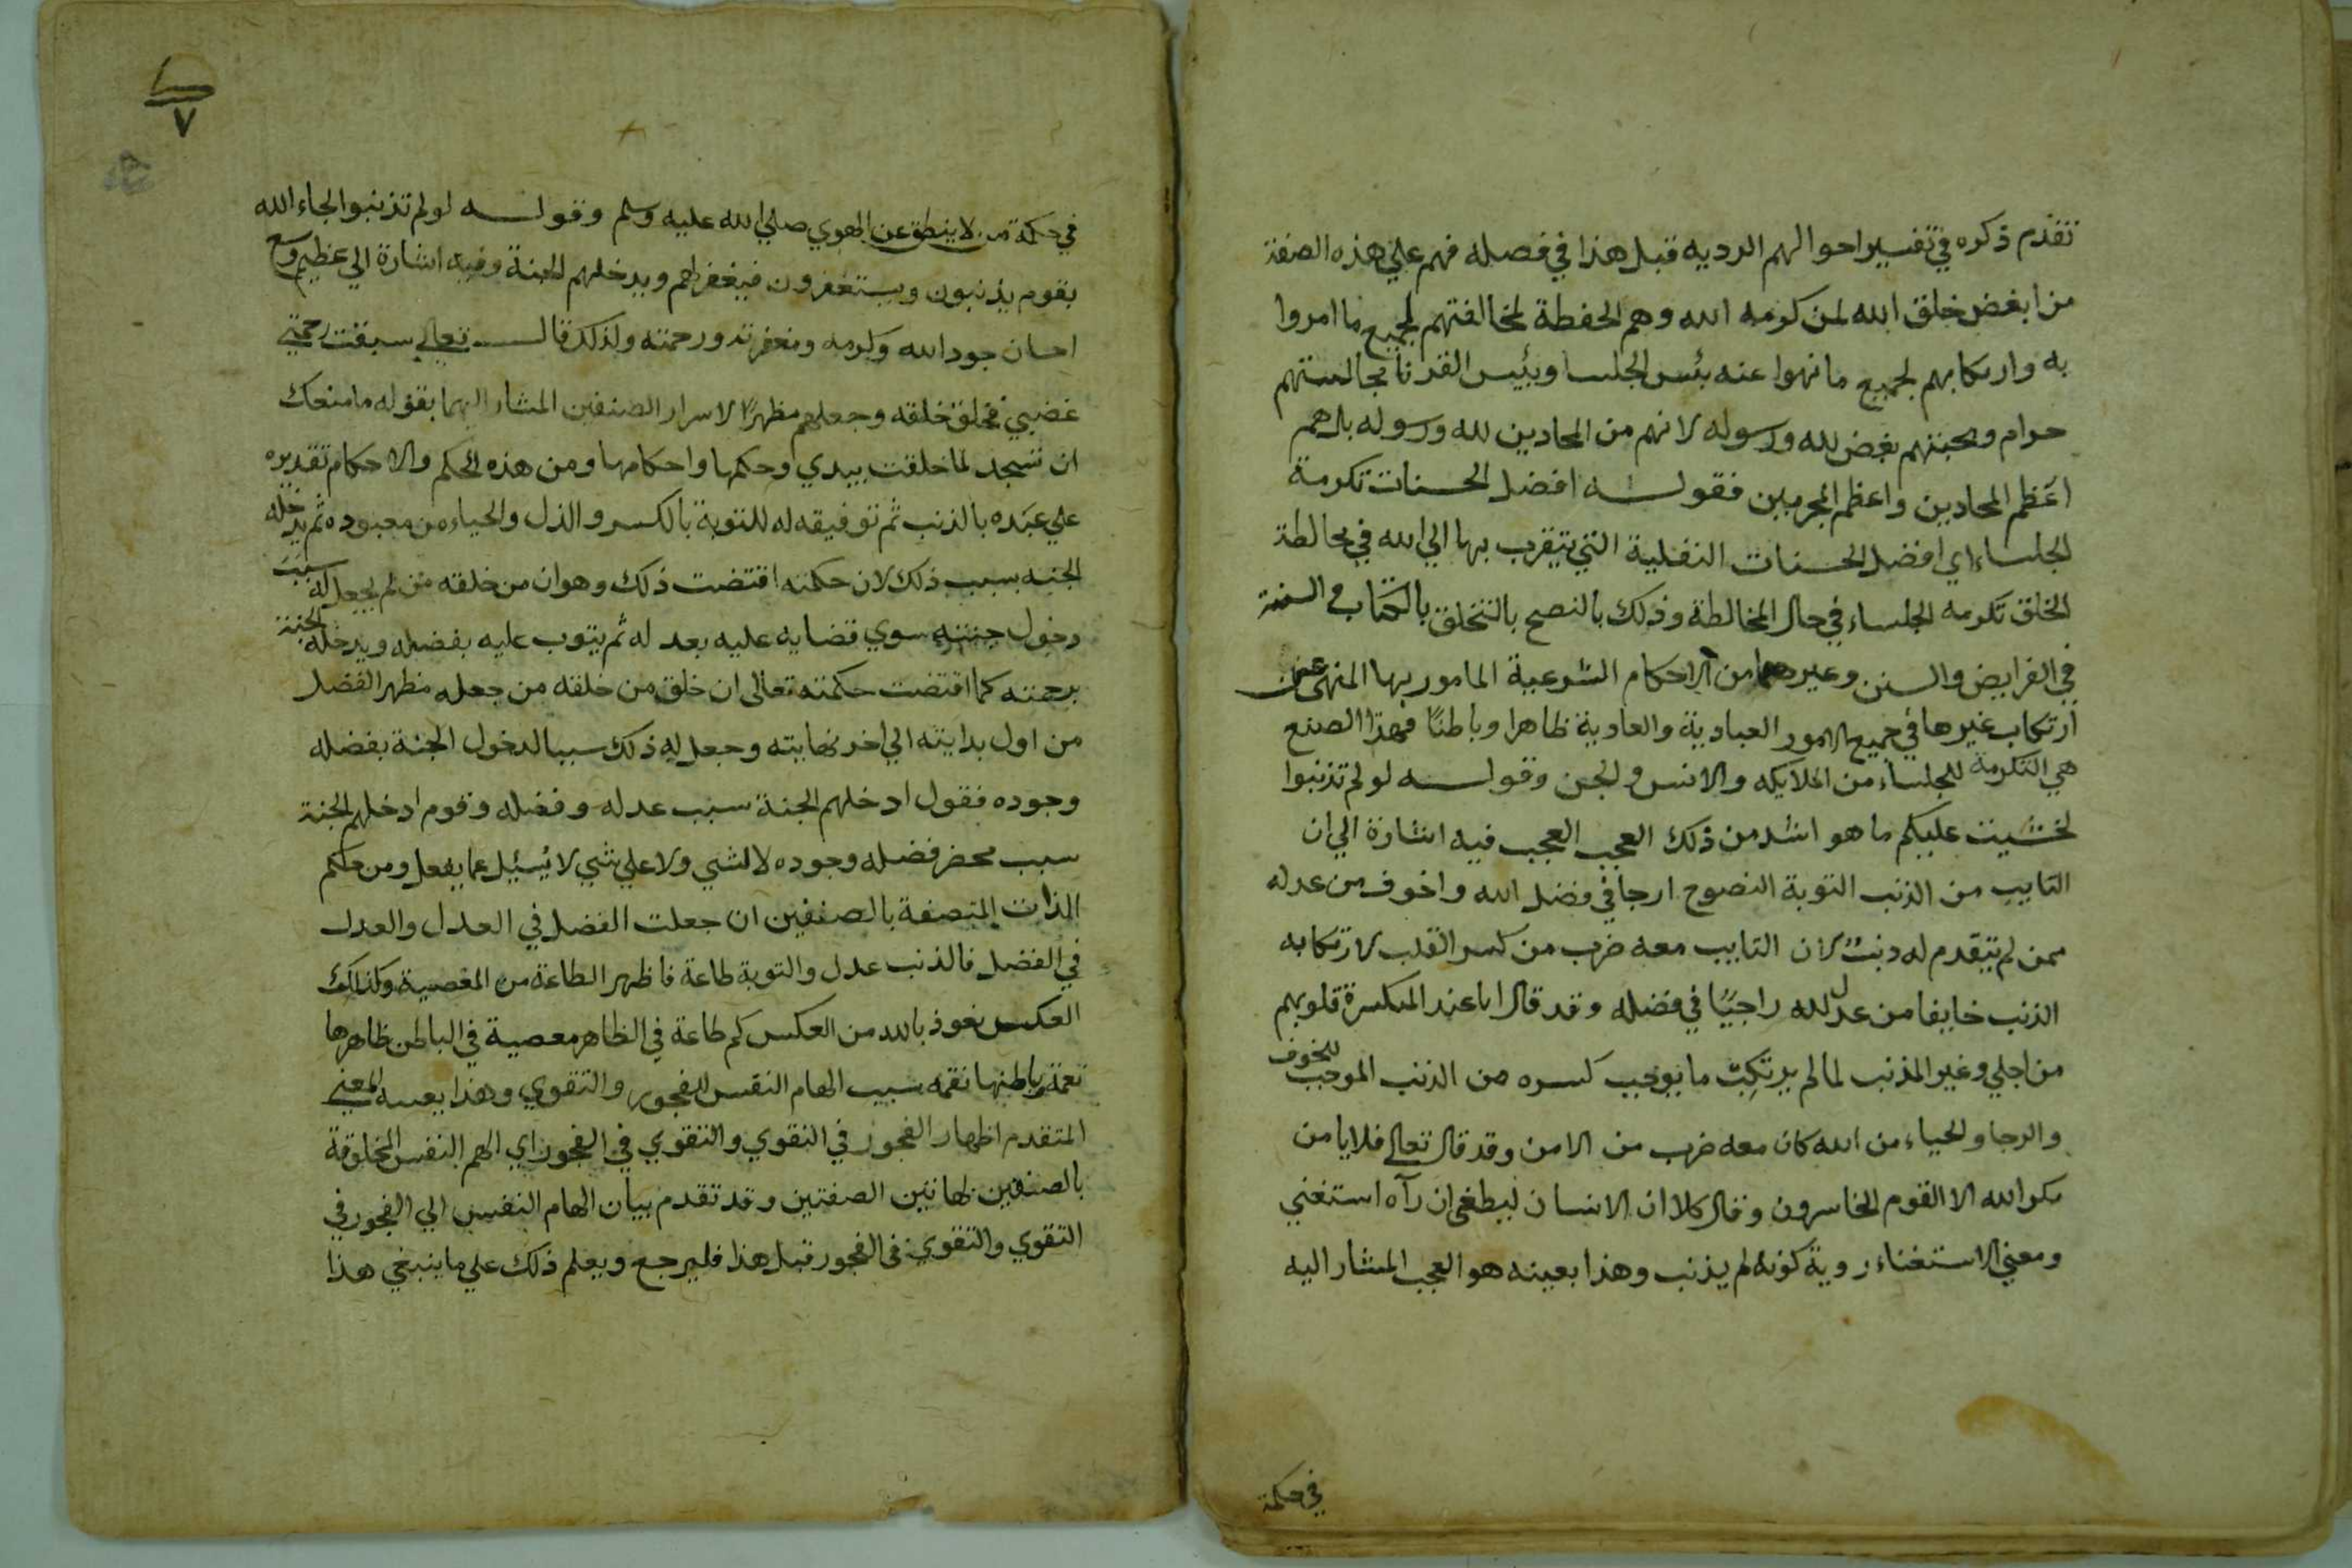 تقدم ذكره في تفسير احوالهم الرديه قبل هذا في فصله فهم علي هذه الصفة
من ابغض خلق الله لمن كرمه الله وهم الحفظة لمخالفتهم لجميع ما امروا
به وارتكابهم لجميع ما نهوا عنه بئس الجلسا وبئيس القرنا مجالستهم
حرام ومحبتهم بغض لله ورسوله لانهم من المحادين لله ورسوله بل هم
اعظم المحادين واعظم المجرمين فقولـــه افضل الحسنات تكرمة
الجلساء اي افضل الحسنات النفلية التي يتقرب بها الي الله في مخالطة
الخلق تكرمه الجلساء في حال المخالطة وذلك بالنصح بالتخلق بالكتاب و السنة
في الفرايض والسنن وغيرهما من الاحكام الشرعية المامور بها المنهي عن
ارتكاب غيرها في جميع الامور العبادية والعادية ظاهرا وباطنًا فهذا الصنع
هي التكرمة للجلساء من الملايكه والانس والجن وقولـــه لو لم تذنبوا
لخشيت عليكم ما هو اشد من ذلك العجب العجب فيه اشارة الي ان
التايب من الذنب التوبة النصوح ارجا في فضل الله واخوف من عدله
ممن لم يتقدم له ذنبٌ لان التايب معه ضرب من كسر القلب لارتكابه
الذنب خايفا من عدل الله راجيًا في فضله وقد قال انا عند المنكسرة قلوبهم
من اجلي وغير المذنب لما لم يرتكب ما يوجب كسره من الذنب الموجب للخوف
والرجا والحياء من الله كان معه ضرب من الامن وقد قال تعالى فلا يامن
مكر الله الا القوم الخاسرون وقال كلا ان الانسان ليطغى ان رآه استغني
ومعني الاستغناء روية كونه لم يذنب وهذا بعينه هو العجب المشار اليه
في حكمة
٧
في حكمة من لا ينطق عن الهوي صلي الله عليه وسلم وقولـــه لو لم تذنبوا لجاء الله
بقوم يذنبون ويستغفرون فيغفر لهم ويدخلهم الجنة وفيه اشارة الي عظيم وسع
احسان جود الله وكرمه ومغفرته ورحمته ولذلك قالـــ تعالى سبقت رحمتي
غضبي فخلق خلقه وجعلهم مظهرًا لاسرار الصنفين المشار اليهما بقوله ما منعك
ان تسجد لما خلقت بيدي وحكمها واحكامها ومن هذه الحكم والاحكام تقديره
علي عبده بالذنب ثم توفيقه له للتوبة بالكسر والذل والحياء من معبوده ثم يدخله
الجنه بسبب ذلك لان حكمته اقتضت ذلك وهو ان من خلقه من لم يجعل له سبب
دخول جنته سوي قضايه عليه بعد له ثم يتوب عليه بفضله ويدخله الجنة
برحمته كما اقتضت حكمته تعالى ان خلق من خلقه من جعله مظهر الفضل
من اول بدايته الي اخر نهايته وجعل له ذلك سببا لدخول الجنة بفضله
وجوده فقول ادخلهم الجنة سبب عدله وفضله وقوم ادخلهم الجنة
سبب محض فضله وجوده لا لشي ولا علي شي لا يُسئل عما يفعل ومن حكم
الذات المتصفة بالصنفين ان جعلت الفضل في العدل والعدل
في الفضل فالذنب عدل والتوبة طاعة فاظهر الطاعة من المعصية وكذلك
العكس نعوذ بالله من العكس كم طاعة في الظاهر معصية في الباطن ظاهرها
نعمة وباطنها نقمه سبب الهام النفس للفجور والتقوي وهذا بعينه المعني
المتقدم اظهار الفجور في التقوي والتقوي في الفجور اي الهم النفس المخلوقة
بالصنفين لهاتين الصفتين وقد تقدم بيان الهام النفس الي الفجور في
التقوي والتقوي في الفجور قبل هذا فليرجع ويعلم ذلك علي ما ينبغي هذا